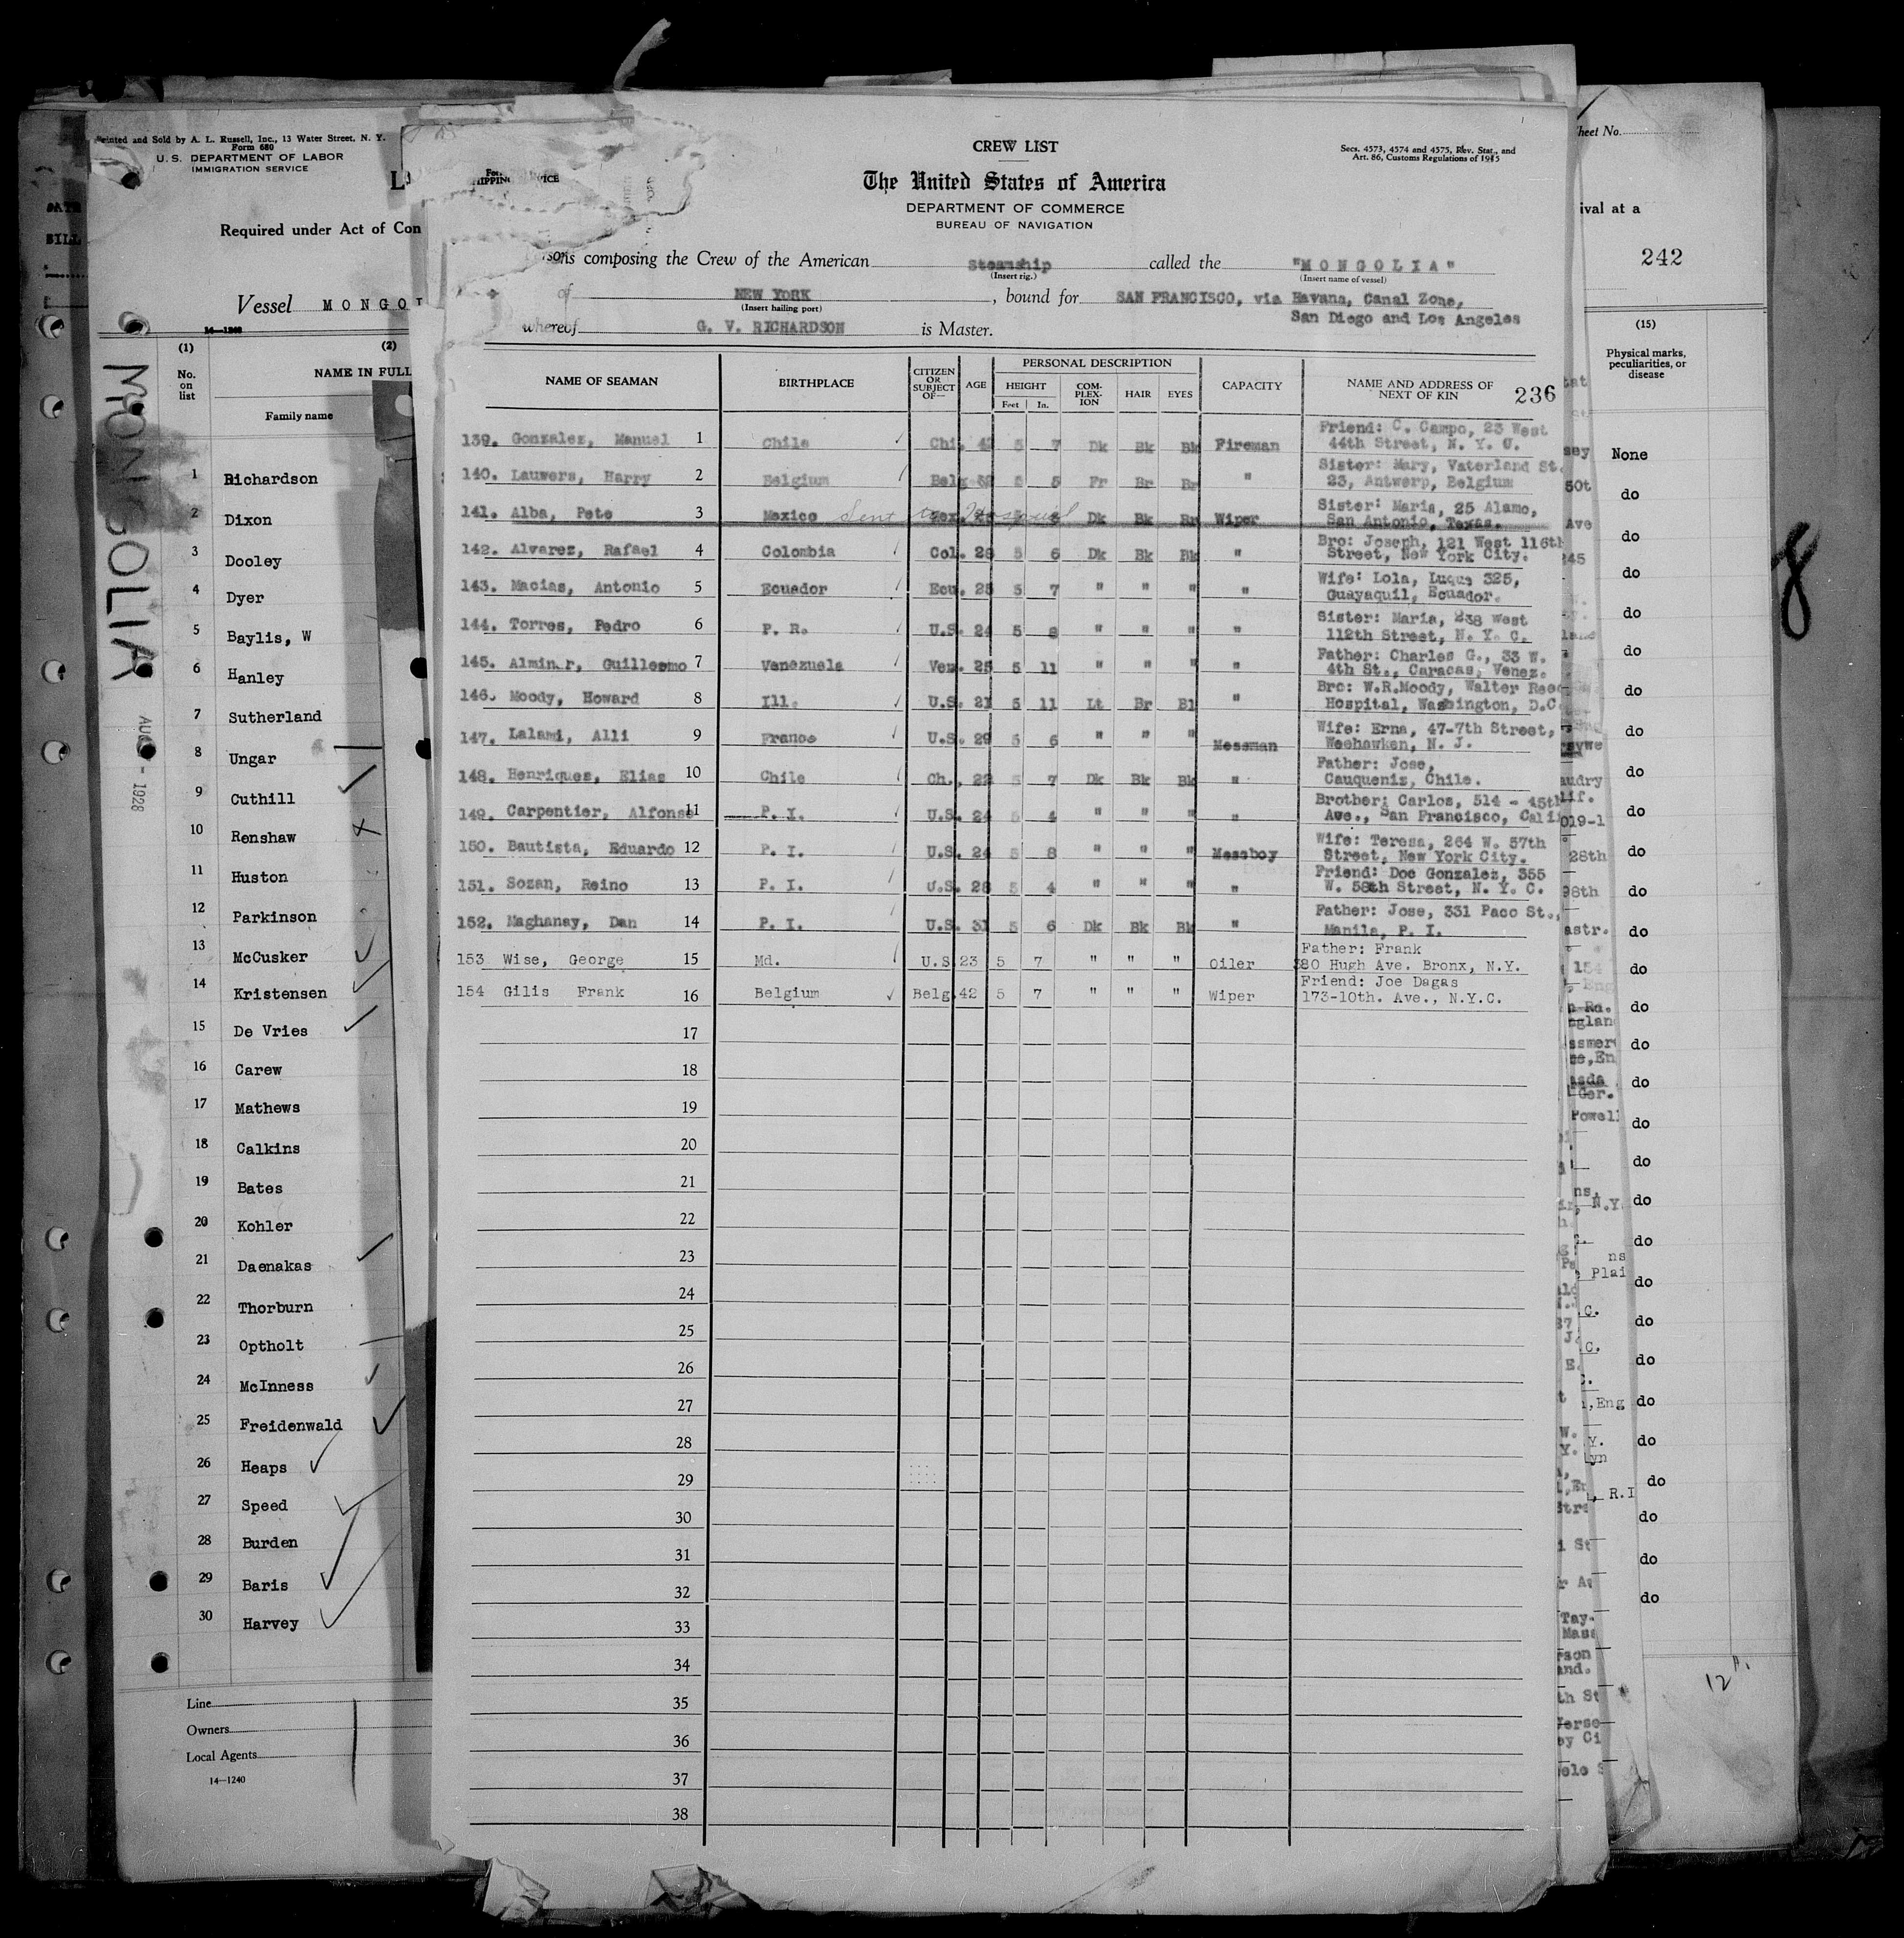 Printed and Sold by A. L. Russell, Inc., 13 Water Street, N. Y.
Form 680
U. S. DEPARTMENT OF LABOR
IMMIGRATION SERVICE
Required under Act of Con
Vessel MONGOL
14—1240
(1) (2)
No. on list
NAME IN FULL
Family name
MONGOLIA
1928
1 Richardson
2 Dixon
3 Dooley
4 Dyer
5 Baylis, W
6 Hanley
7 Sutherland
8 Ungar
9 Cuthill
10 Renshaw
11 Huston
12 Parkinson
13 McCusker
14 Kristensen
15 De Vries
16 Carew
17 Mathews
18 Calkins
19 Bates
20 Kohler
21 Daenakas
22 Thorburn
23 Optholt
24 McInness
25 Freidenwald
26 Heaps
27 Speed
28 Burden
29 Baris
30 Harvey
Line
Owners
Local Agents
14—1240
CREW LIST
Secs. 4573, 4574 and 4575, Rev. Stat., and
Art. 86, Customs Regulations of 1915
The United States of America
DEPARTMENT OF COMMERCE
BUREAU OF NAVIGATION
sons composing the Crew of the American Steamship called the "MONGOLIA"
(Insert rig.) (Insert name of vessel)
of NEW YORK, bound for SAN FRANCISCO, via Havana, Canal Zone,
(Insert hailing port) San Diego and Los Angeles
whereof G. V. RICHARDSON is Master.
NAME OF SEAMAN BIRTHPLACE CITIZEN OR SUBJECT OF— AGE PERSONAL DESCRIPTION CAPACITY NAME AND ADDRESS OF NEXT OF KIN 236
HEIGHT COMPLEXION HAIR EYES
Feet In.
139. Gonzalez, Manuel 1 Chile Chi. 42 5 7 Dk Bk Bk Fireman Friend: C. Campo, 23 West
44th Street, N. Y. C.
140. Lauwers, Harry 2 Belgium Belg 32 5 5 Fr Br Br " Sister: Mary, Vaterland St.
23, Antwerp, Belgium
141. Alba, Pete 3 Mexico Sent to Hospital Mex. Dk Bk Br Wiper Sister: Maria, 25 Alamo,
San Antonio, Texas.
142. Alvarez, Rafael 4 Colombia Col. 28 5 6 Dk Bk Bk " Bro: Joseph, 121 West 116th
Street, New York City.
143. Macias, Antonio 5 Ecuador Ecu. 25 5 7 " " " " Wife: Lola, Luque 325,
Guayaquil, Ecuador.
144. Torres, Pedro 6 P. R. U.S. 24 5 8 " " " " Sister: Maria, 238 West
112th Street, N. Y. C.
145. Guillermo 7 Venezuela Ven. 25 5 11 " " " " Father: Charles G., 33 W.
4th St., Caracas, Venez.
146. Moody, Howard 8 Ill. U.S. 21 5 11 Lt Br Bl " Bro: W.R.Moody, Walter Reed
Hospital, Washington, D.C
147. Lalami, Alli 9 France U.S. 29 5 6 " " " Messman Wife: Erna, 47-7th Street,
Weehawken, N. J.
148. Henriques, Elias 10 Chile Ch., 22 5 7 Dk Bk Bk " Father: Jose,
Cauqueniz, Chile.
149. Carpentier, Alfonso 11 P. I. U.S. 24 5 4 " " " " Brother: Carlos, 514 - 45th
Ave., San Francisco, Calif
150. Bautista, Eduardo 12 P. I. U.S. 24 5 8 " " " Messboy Wife: Teresa, 264 W. 57th
Street, New York City.
151. Sozan, Reino 13 P. I. U.S. 28 5 4 " " " " Friend: Doc Gonzalez, 355
W. 58th Street, N. Y. C.
152. Maghanay, Dan 14 P. I. U.S. 31 5 6 Dk Bk Bk " Father: Jose, 331 Paco St.,
Manila, P. I.
153 Wise, George 15 Md. U.S. 23 5 7 " " " Oiler Father: Frank
380 Hugh Ave. Bronx, N.Y.
154 Gilis Frank 16 Belgium Belg. 42 5 7 " " " Wiper Friend: Joe Dagas
173-10th. Ave., N.Y.C.
17
18
19
20
21
22
23
24
25
26
27
28
29
30
31
32
33
34
35
36
37
38
Sheet No.
ival at a
242
(15)
Physical marks, peculiarities, or disease
None
do
do
do
do
do
do
do
do
do
do
do
do
do
do
do
do
do
do
do
do
do
do
do
do
do
do
do
do
do
8
12